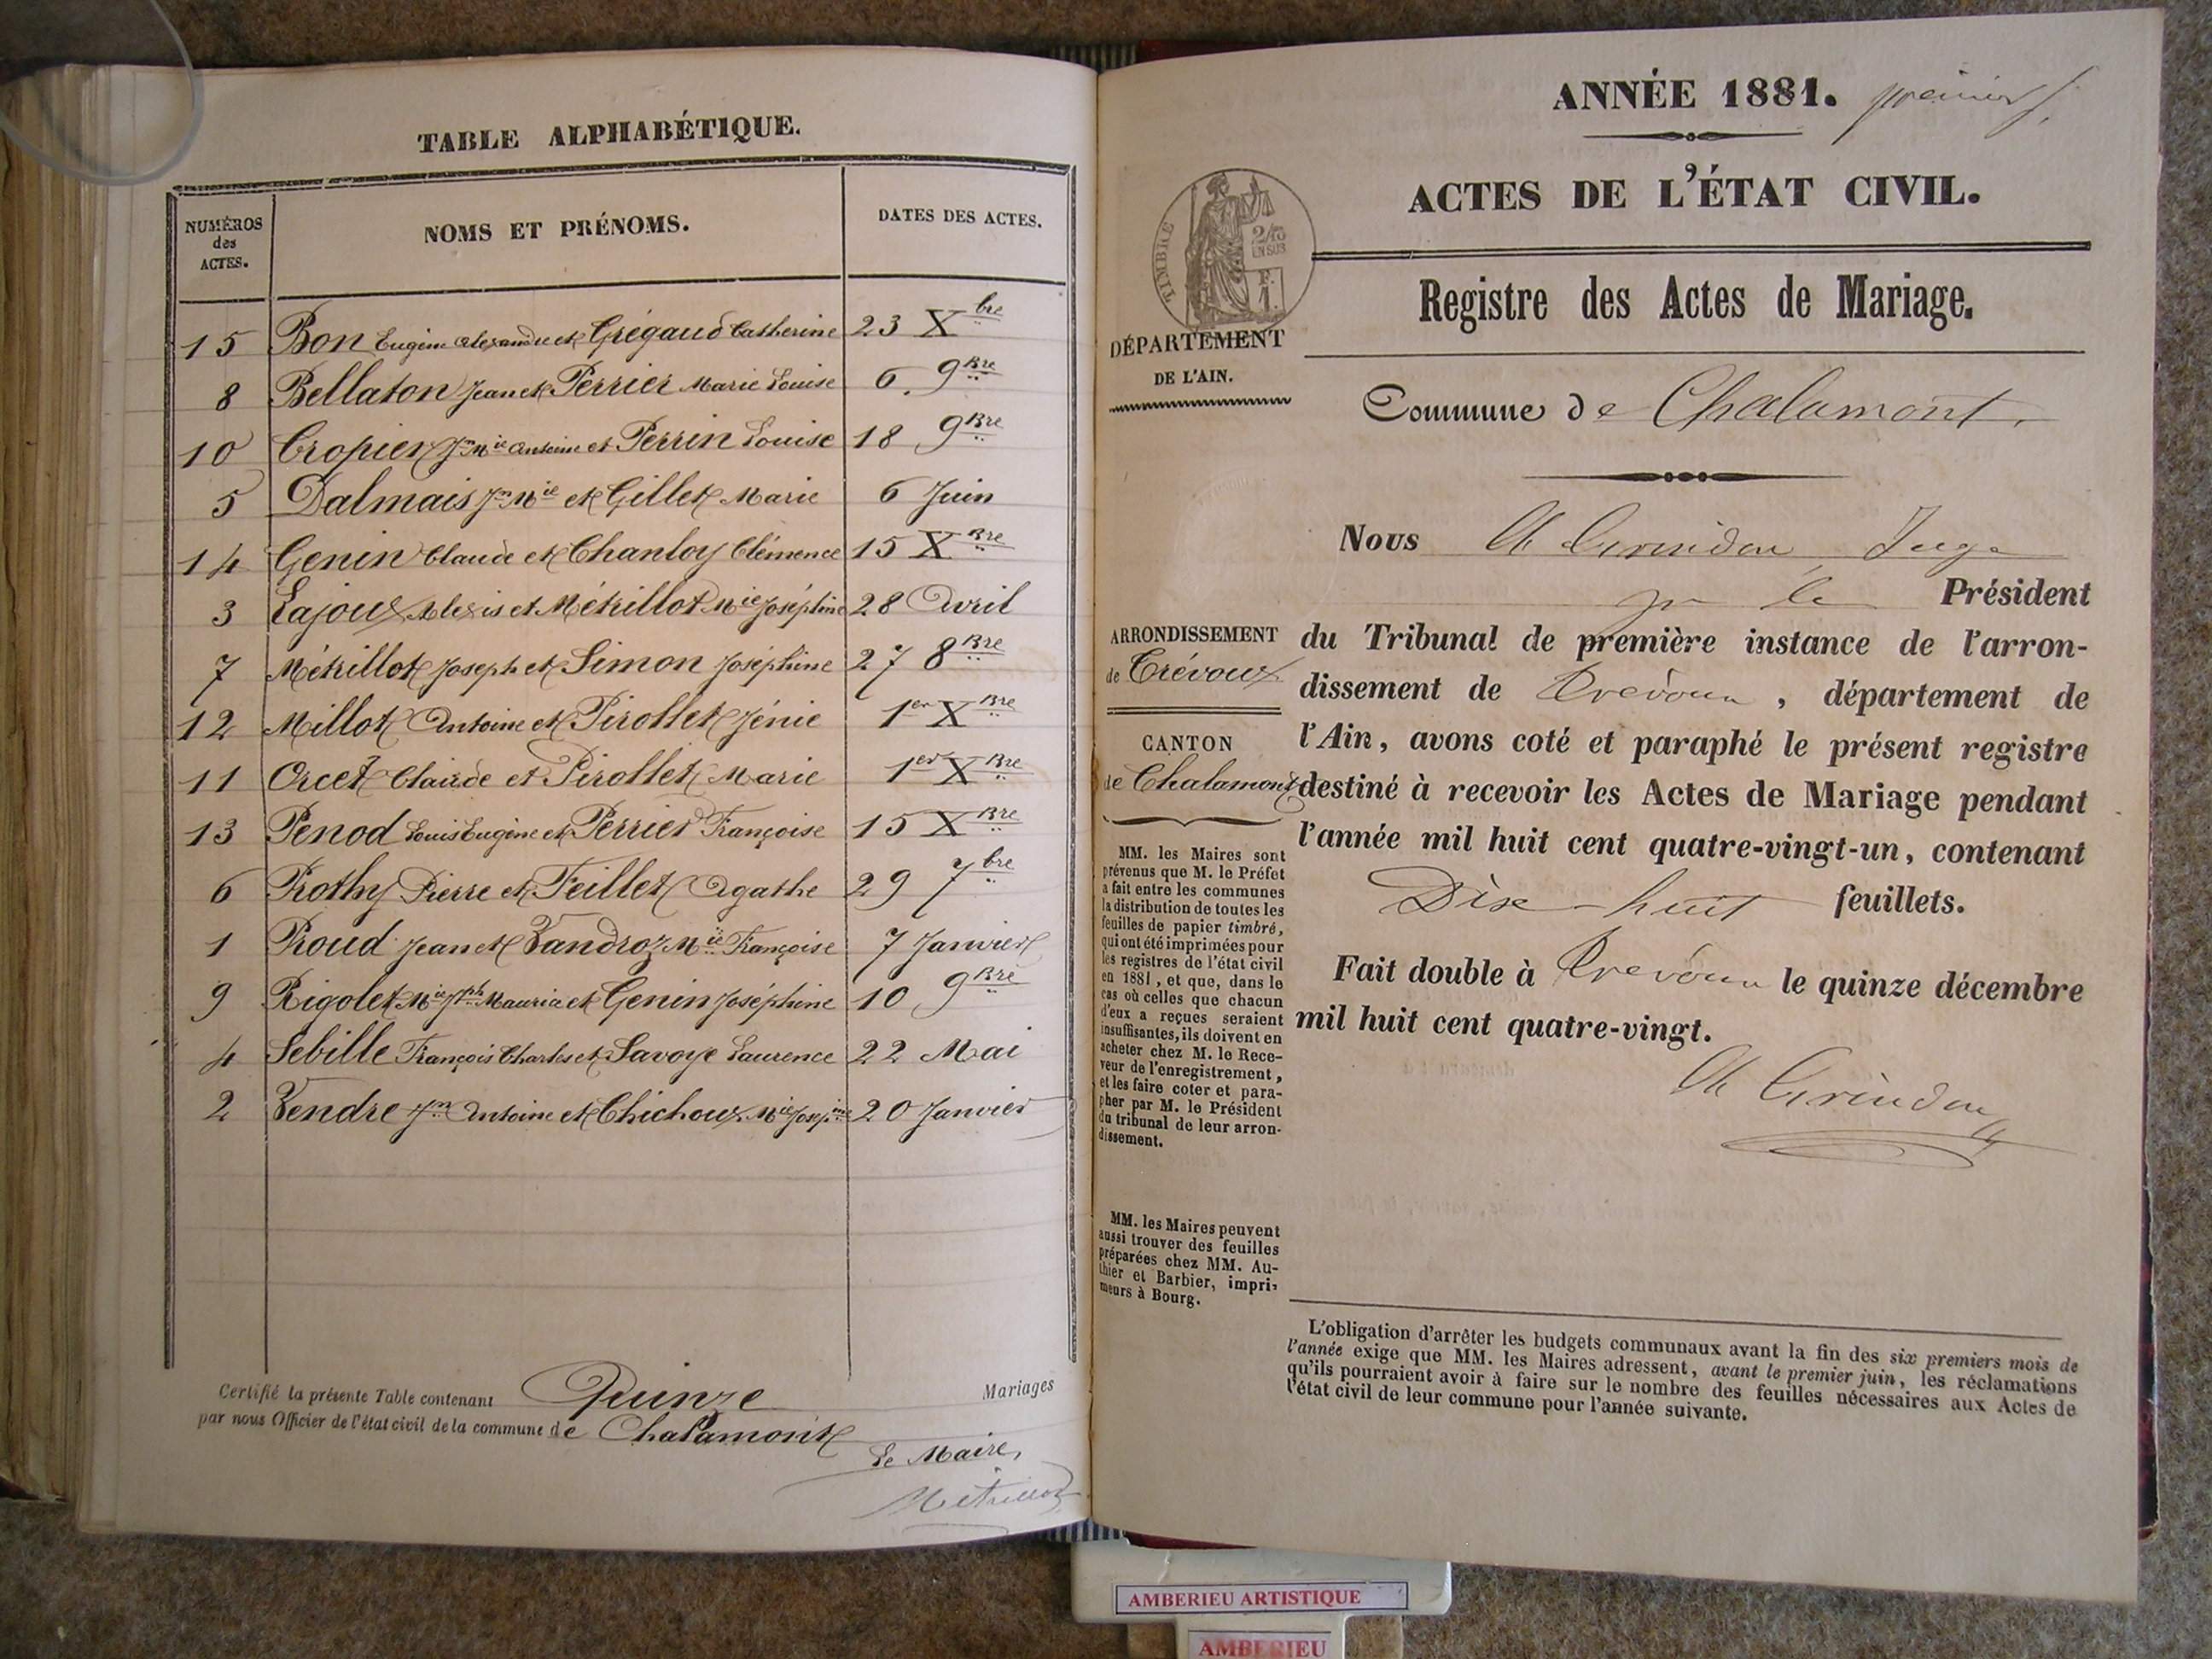 TABLE ALPHABÉTIQUE.
NUMÉROS des ACTES.
NOMS ET PRÉNOMS.
DATES DES ACTES.
15 Bon Eugène Alexandre et Grégaud Catherine 23 Xbre
8 Bellaton Jean et Perrier Marie Louise 6. 9Bre
10 Cropier Jn Mie Antoine et Perrin Louise 18 9Bre
5 Dalmais Jn Mie et Gillet Marie 6 Juin
14 Genin Claude et Chanloy Clémence 15 XBre
3 Lajoux Alexis et Métrillot Mie Joséphine 28 Avril
7 Métrillot Joseph et Simon Joséphine 27 8Bre
12 Millot Antoine et Pirollet Jénie 1er XBre
11 Orcet Claude et Pirollet Marie 1er XBre
13 Penod Louis Eugène et Perrier Françoise 15 XBre
6 Prothy Pierre et Feillet Agathe 29 7bre
1 Proud Jean et Vandroz Mie Françoise 7 Janvier
9 Rigolet Mie Jph Maurice et Genin Joséphine 10 9Bre
4 Sebille François Charles et Savoye Laurence 22 Mai
2 Vendre Jn Antoine et Chichoux Mie Josepine 20 Janvier
Certifié la présente Table contenant Quinze Mariages
par nous Officier de l'état civil de la commune de Chalamont
Le Maire,
Métrillot
ANNÉE 1881. premier
ACTES DE L'ÉTAT CIVIL.
TIMBRE
2/10
EN SUS
F.
1.
Registre des Actes de Mariage.
DÉPARTEMENT
DE L'AIN.
Commune de Chalamont.
Nous Juge
Président
du Tribunal de première instance de l'arron-
dissement de Trévoux, département de
l'Ain, avons coté et paraphé le présent registre
destiné à recevoir les Actes de Mariage pendant
l'année mil huit cent quatre-vingt-un, contenant
Dix-huit feuillets.
Fait double à Trévoux le quinze décembre
mil huit cent quatre-vingt.
ARRONDISSEMENT
de Trévoux
CANTON
de Chalamont
MM. les Maires sont
prévenus que M. le Préfet
a fait entre les communes
la distribution de toutes les
feuilles de papier timbré,
qui ont été imprimées pour
les registres de l'état civil
en 1881, et que, dans le
cas où celles que chacun
d'eux a reçues seraient
insuffisantes, ils doivent en
acheter chez M. le Rece-
veur de l'enregistrement,
et les faire coter et para-
pher par M. le Président
du tribunal de leur arron-
dissement.
MM. les Maires peuvent
aussi trouver des feuilles
préparées chez MM. Au-
thier et Barbier, impri-
meurs à Bourg.
L'obligation d'arrêter les budgets communaux avant la fin des six premiers mois de
l'année exige que MM. les Maires adressent, avant le premier juin, les réclamations
qu'ils pourraient avoir à faire sur le nombre des feuilles nécessaires aux Actes de
l'état civil de leur commune pour l'année suivante.
AMBERIEU ARTISTIQUE
AMBERIEU